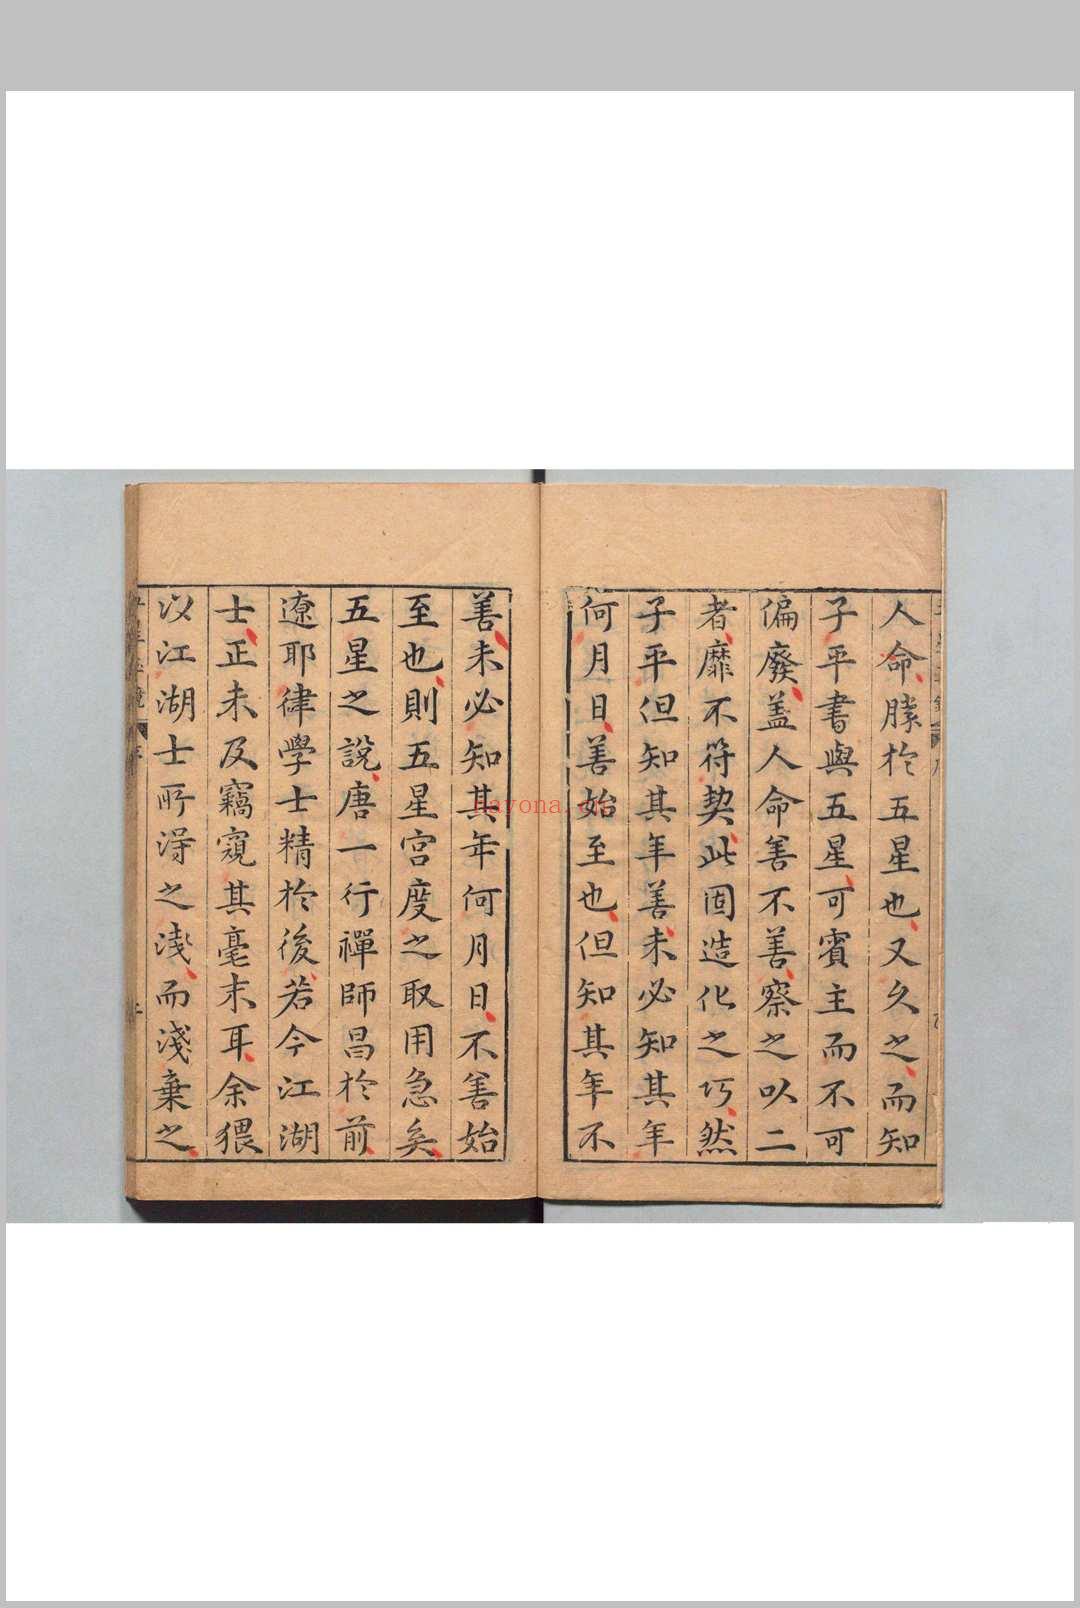 人命牓於五星也又久之而知
子平書與五星可賓主而不可
偏廢盖人命善不善察之以二
者靡不符契此固造化之巧然
子平但知其年善未必知其年
何月日善始至也但知其年不
善未必知其年何月日不善始
至也則五星宮度之取用急矣
五星之說唐一行禪師昌於前
遼耶律學士精於後若今江湖
士正未及竊窺其毫末耳余猥
以江湖士所淂之淺而淺棄之
nayona.cn